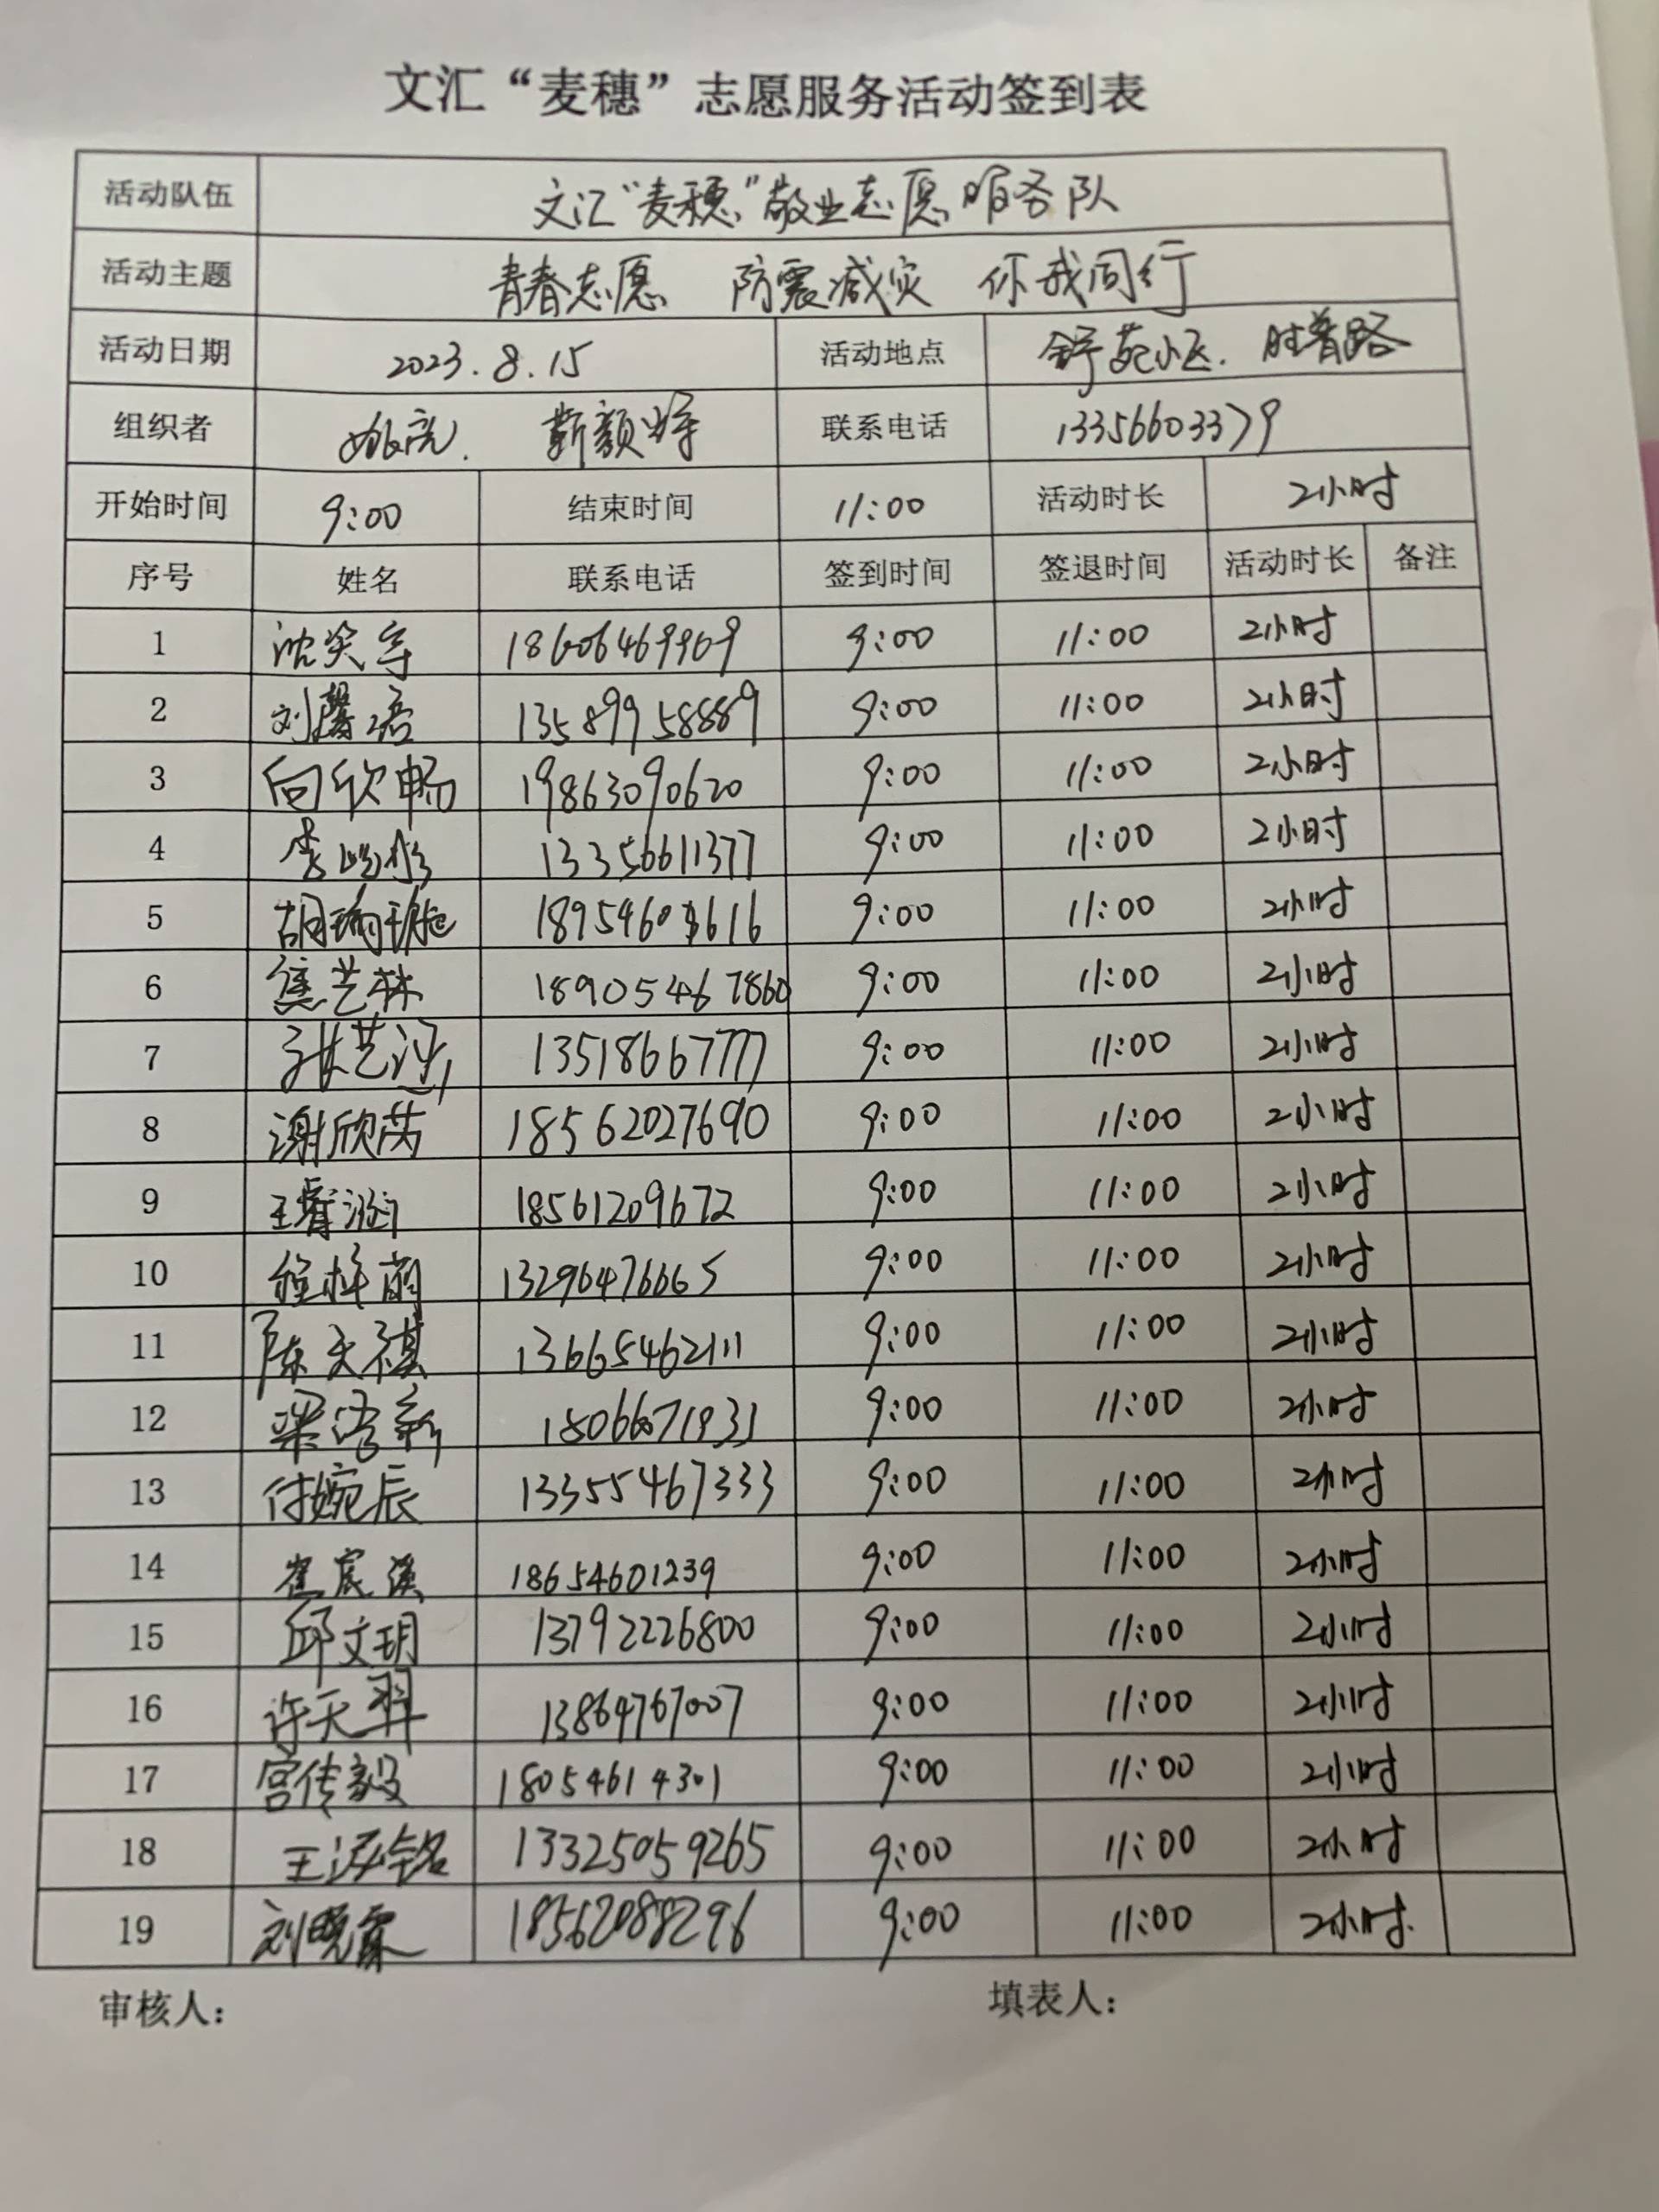 文汇“麦穗”志愿服务活动签到表
活动队伍 文汇“麦穗”敬业志愿服务队
活动主题 青春志愿 防震减灾 你我同行
活动日期 2023.8.15 活动地点 舒苑小区.
组织者 姚亮. 靳颜 联系电话 13356603379
开始时间 9:00 结束时间 11:00 活动时长 2小时
序号 姓名 联系电话 签到时间 签退时间 活动时长 备注
1 沈奕 18606469909 9:00 11:00 2小时
2 刘馨语 13589958889 9:00 11:00 2小时
3 向欣畅 19863090620 9:00 11:00 2小时
4 李 13356611377 9:00 11:00 2小时
5 胡瑜 9:00 11:00 2小时
6 焦艺林 18905467860 9:00 11:00 2小时
7 张艺 13518667777 9:00 11:00 2小时
8 谢欣芮 18562027690 9:00 11:00 2小时
9 王睿涵 18561209672 9:00 11:00 2小时
10 程梓 13296476665 9:00 11:00 2小时
11 陈天祺 13665462111 9:00 11:00 2小时
12 梁 新 9:00 11:00 2小时
13 付婉辰 13355467333 9:00 11:00 2小时
14 崔宸溪 18654601239 9:00 11:00 2小时
15 邱文玥 13792226800 9:00 11:00 2小时
16 许天羿 13864767007 9:00 11:00 2小时
17 宫传毅 18054614301 9:00 11:00 2小时
18 王泓铭 13325059265 9:00 11:00 2小时
19 刘晓霖 18562088296 9:00 11:00 2小时.
审核人： 填表人：